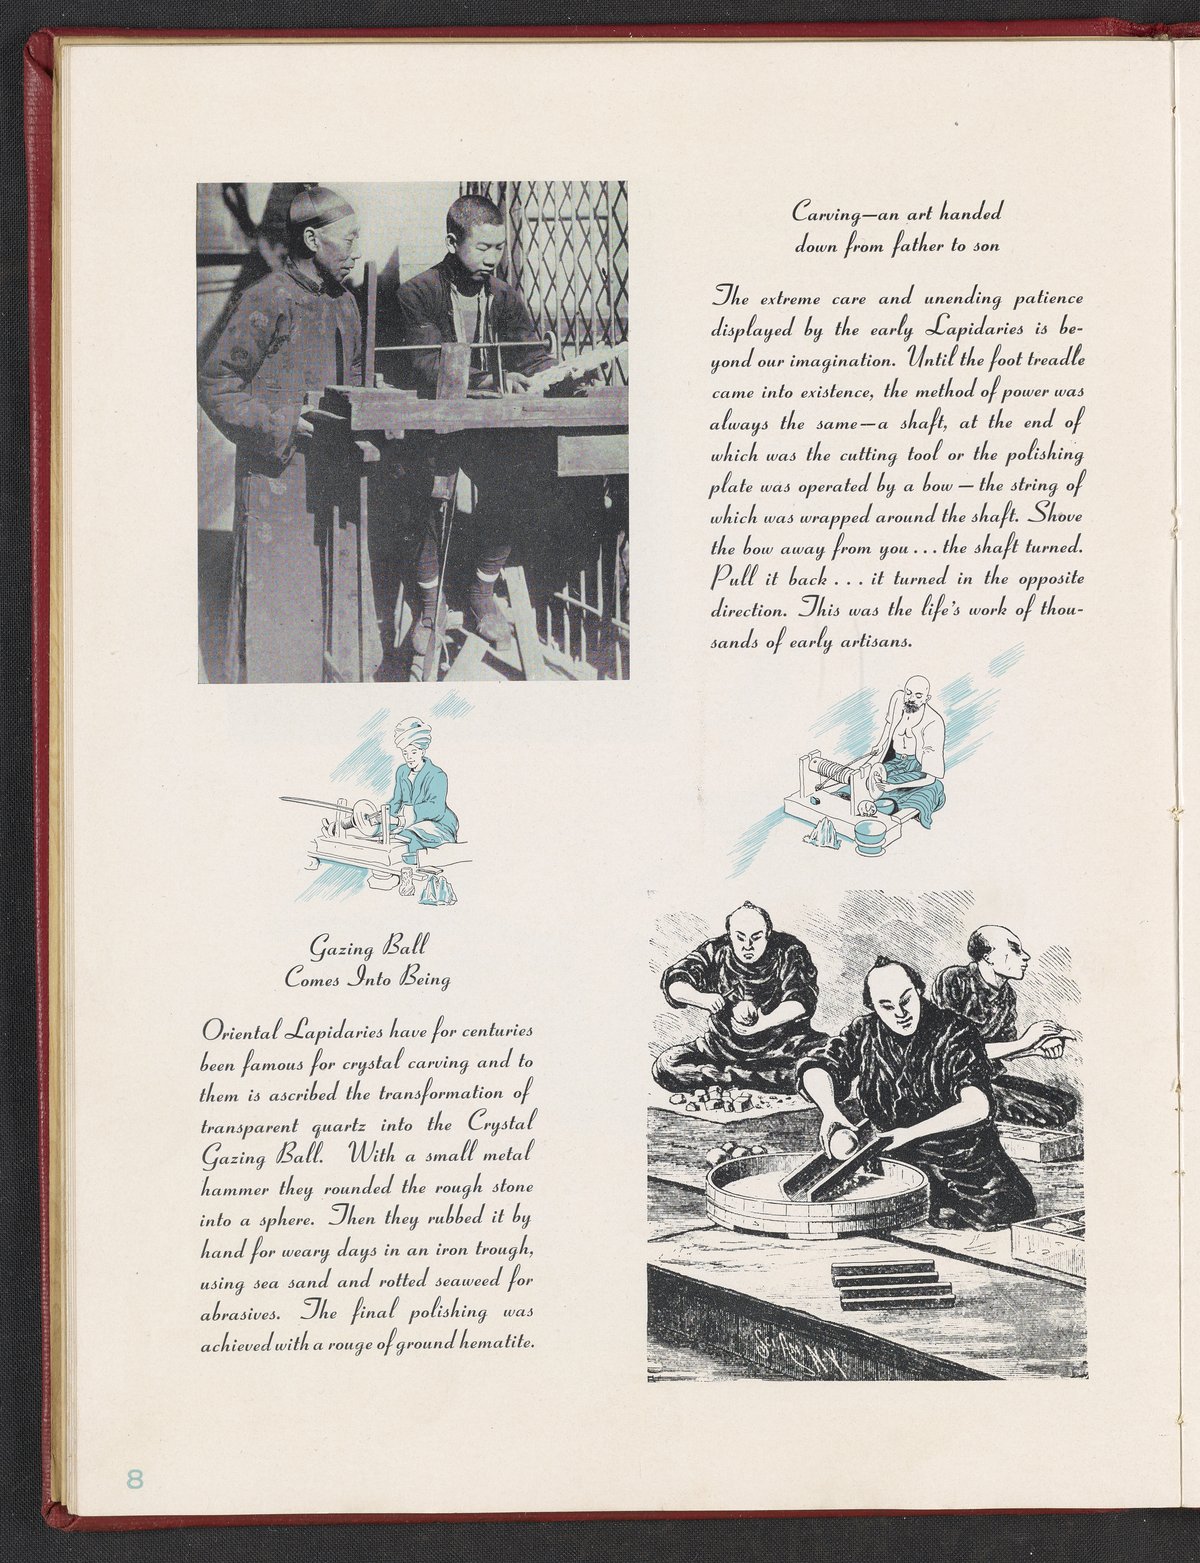 Carving—an art handed
down from father to son
The extreme care and unending patience
displayed by the early Lapidaries is be-
yond our imagination. Until the foot treadle
came into existence, the method of power was
always the same—a shaft, at the end of
which was the cutting tool or the polishing
plate was operated by a bow — the string of
which was wrapped around the shaft. Shove
the bow away from you . . . the shaft turned.
Pull it back . . . it turned in the opposite
direction. This was the life's work of thou-
sands of early artisans.
Gazing Ball
Comes Into Being
Oriental Lapidaries have for centuries
been famous for crystal carving and to
them is ascribed the transformation of
transparent quartz into the Crystal
Gazing Ball. With a small metal
hammer they rounded the rough stone
into a sphere. Then they rubbed it by
hand for weary days in an iron trough,
using sea sand and rotted seaweed for
abrasives. The final polishing was
achieved with a rouge of ground hematite.
8